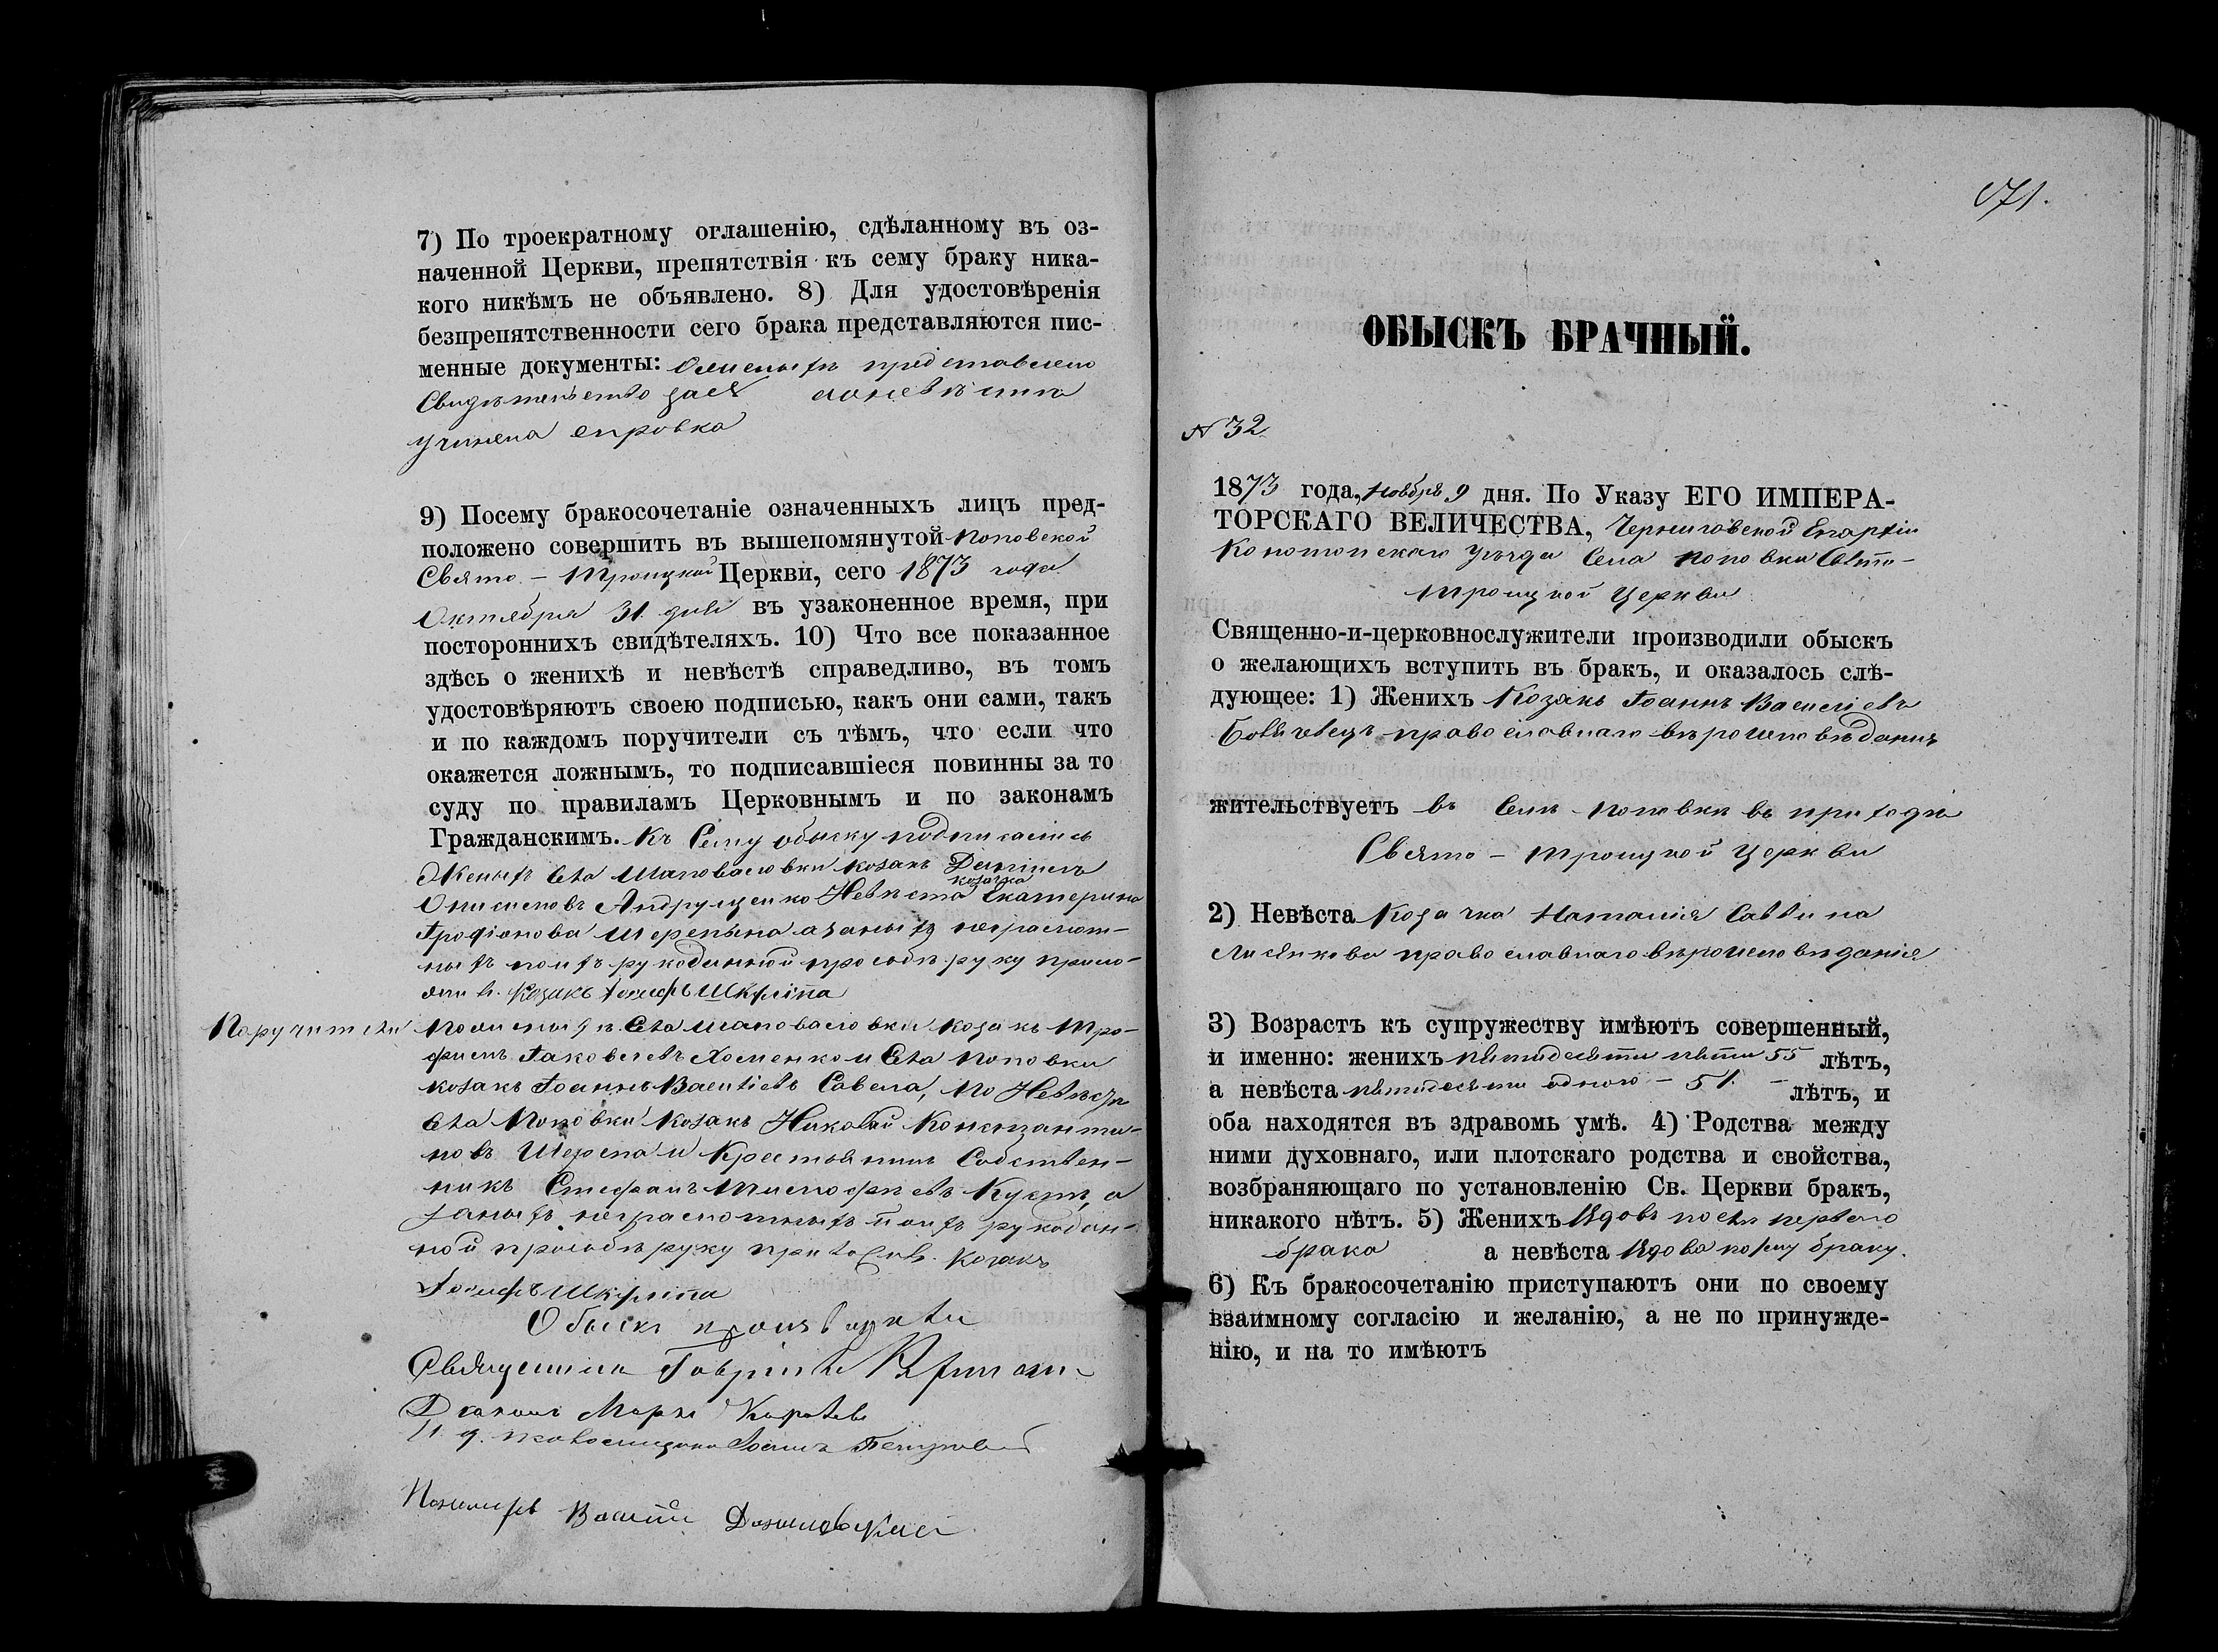 7) По троекратному оглашенію, сдѣланному въ оз-
наченной Церкви, препятствія къ сему браку ника-
кого никѣмъ не объявлено. 8) Для удостовѣренія
безпрепятственности сего брака представляются пис-
менные документы: представлено
Свидѣтельство
учинена справка
9) Посему бракосочетаніе означенныхъ лицъ пред-
положено совершить въ вышепомянутой Поповской
Свято-Троицкой Церкви, сего 1873 года
Октября 31 дня въ узаконенное время, при
постороннихъ свидѣтеляхъ. 10) Что все показанное
здѣсь о женихѣ и невѣстѣ справедливо, въ томъ
удостовѣряютъ своею подписью, какъ они сами, такъ
и по каждомъ поручители съ тѣмъ, что если что
окажется ложнымъ, то подписавшіеся повинны за то
суду по правиламъ Церковнымъ и по законамъ
Гражданскимъ. Къ Сему обыску подписались
Женихъ Села Шаповаловки козакъ
Андрущенко Невѣста козачка Екатерина
Трофіонова Шерепина а за нихъ неграмот-
ныхъ по ихъ рукоданной прозьбѣ руку прило-
жилъ. Козакъ Іосифъ Шкуріпа
Поручители По женихѣ Села Шаповаловки козакъ Тро-
фимъ Іаковлевъ Хоменко и Села Поповки
козакъ Іоаннъ Васильевъ Савела, По Невѣстѣ
Села Поповки Козакъ Николай Константи-
новъ Шерепа и Крестьянинъ Собствен-
никъ Стефанъ Тимофѣевъ а
за нихъ неграмотныхъ по ихъ рукодан-
ной прозьбѣ руку приложилъ Козакъ
Іосифъ Шкуріпа
Обыскъ производили
Священникъ Гавріилъ
Діаконъ Марко
И. д. псаломщика Іоаннъ
Пономарь Василій Даниловскій
171.
ОБЫСКЪ БРАЧНЫЙ.
№ 32
1873 года, Ноября 9 дня. По Указу ЕГО ИМПЕРА-
ТОРСКАГО ВЕЛИЧЕСТВА, Черниговской Епархіи
Конотопскаго уѣзда Села Поповки Свято-
Троицкой Церкви
Священно-и-церковнослужители производили обыскъ
о желающихъ вступить въ бракъ, и оказалось слѣ-
дующее: 1) Женихъ Козакъ Іоаннъ Васильевъ
православнаго вѣроисповѣданія
жительствуетъ въ Селѣ Поповки въ приходѣ
Свято-Троицкой Церкви
2) Невѣста Козачка Наталія Саввина
православнаго вѣроисповѣданія
3) Возрастъ къ супружеству имѣютъ совершенный,
и именно: женихъ пятидесяти пяти 55 лѣтъ,
а невѣста пятидесяти одного - 51. - лѣтъ, и
оба находятся въ здравомъ умѣ. 4) Родства между
ними духовнаго, или плотскаго родства и свойства,
возбраняющаго по установленію Св. Церкви бракъ,
никакого нѣтъ. 5) Женихъ Вдовъ послѣ перваго
брака а невѣста Вдова по браку.
6) Къ бракосочетанію приступаютъ они по своему
взаимному согласію и желанію, а не по принужде-
нію, и на то имѣютъ